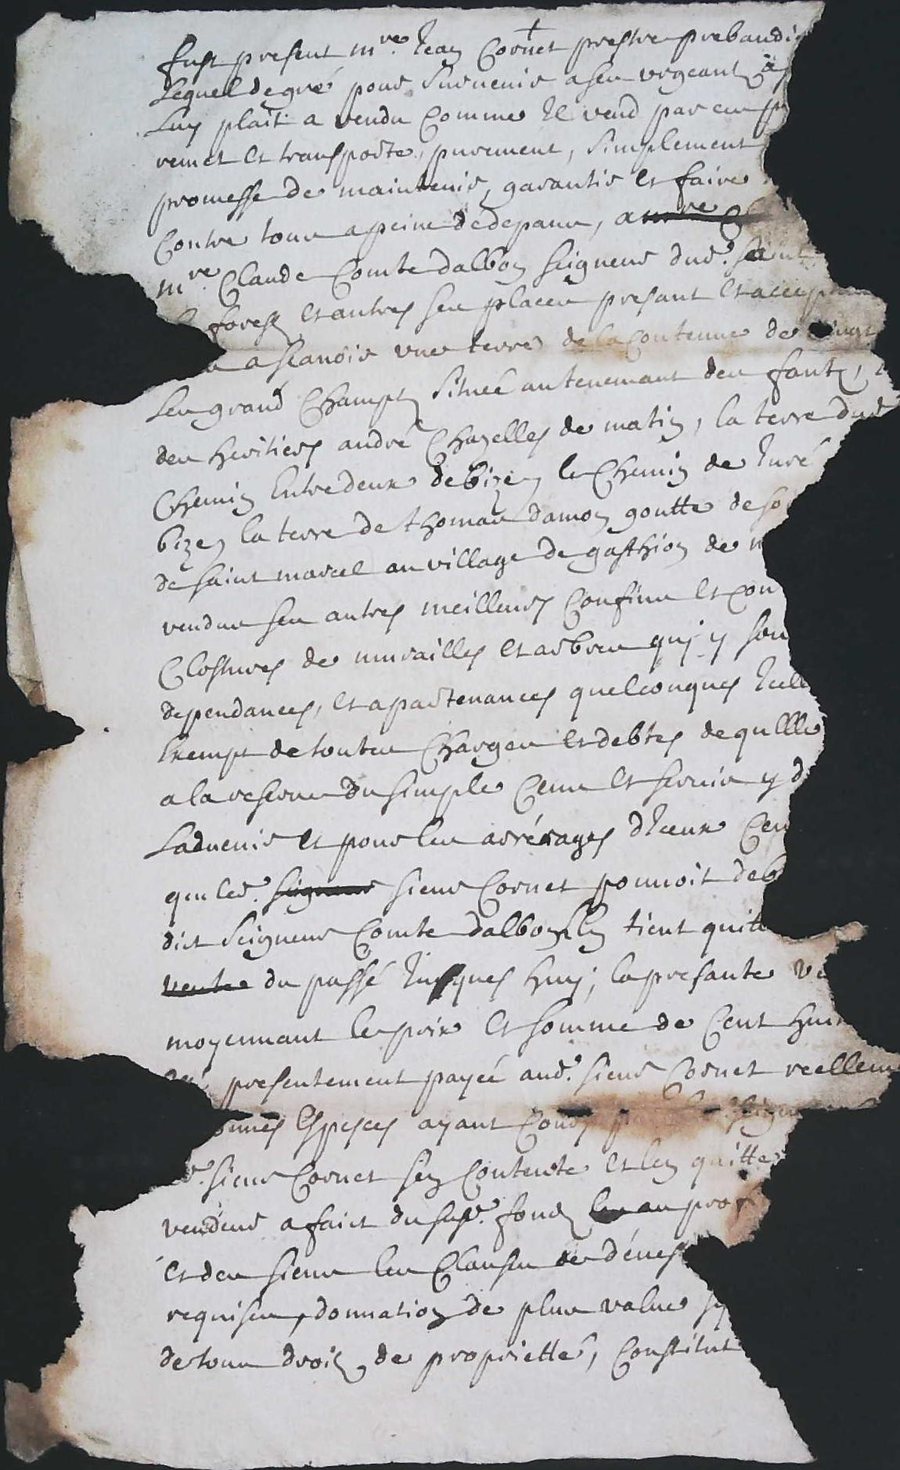 fust present mre Jean Cornet prestre prebandi
Lequel de gré pour survenir a seu urgeant
Luy plait a vendu Comme Il vend par ceu p
remet et transporte, purement, simplement
promesse de maintenir, garantir et faire
Contre toux a peine de depanx, a
mre Claude Comte dalbon seigneur dud. saint
forez et autres seu placeu presant et accep
a scavoir une terre de la Contenue de vingt
Leu grand Champt située au tenemant deu fant,
deu heritiers andré Chazelles de matin, la terre dud
Chemin Entredeux de bize, le Chemin de Juré
bize, la terre de thomau damon goutte de so
de saint marcel au village de gasthion de m
vendue seu autres meilleurs Confinu et con
Clostures de murailles et arbreu qui y son
dependances, et apartenances quelconques Icell
Exempt de touteu Chargeu et debtes de quelle
a la reserve du simple Cenu et servix y d
Ladvenir et pour leu arrérages dIceux Cen
que led. seigneur sieur Cornet pouvoit deb
dict seigneur Comte dalbon len tient quitt
vente du passé Jusques huy; la presante ve
moyennant le prix et somme de Cent hui
presentement payée aud. sieur Cornet reelleme
onnes Especes ayant Cours seigne
sieur Cornet sen Contente et len quitte
vendeur a faict du susd. fondz au prof
et deu sieux leu Clauseu de dévest
requiseu, donnation de plux value
de toux droitz de proprietté, Constitut